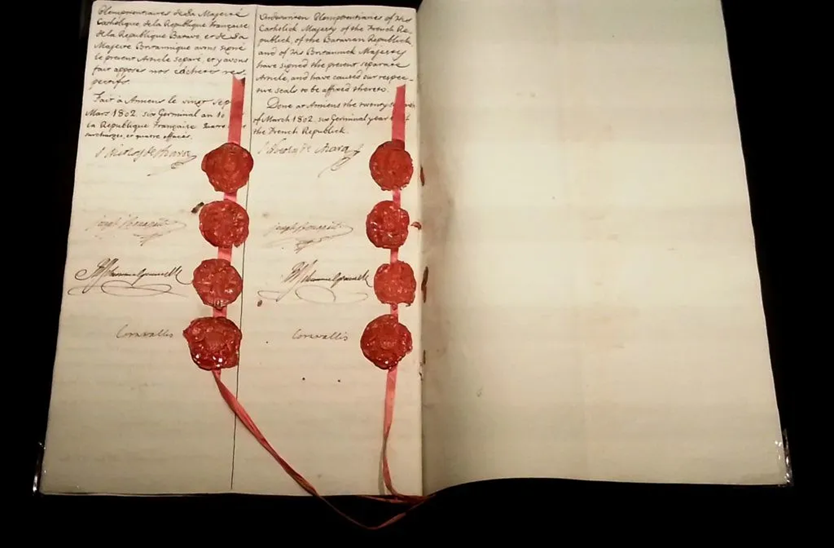 Plenipotentiaires de Sa Majesté
Catholique de la Republique française
de la Republique Batave et de Sa
Majesté Britannique avons signé
le présent Article separé, et y avons
fait apposer nos cachets res-
pectifs.
Fait à Amiens le vingt sep
Mars 1802. six Germinal an 10
la Republique française
surcharges, et quatre effacés.
Joseph Bonaparte
R J Schimmelpenninck
Cornwallis
Plenipotentiaries of His
Catholick Majesty of the French Re-
publick, of the Batavian Republick
and of His Britannick Majesty
have signed the present separate
Article, and have caused our respec-
tive seals to be affixed thereto.
Done at Amiens the twenty
of March 1802. six Germinal year
the French Republick.
Joseph Bonaparte
R J Schimmelpenninck
Cornwallis